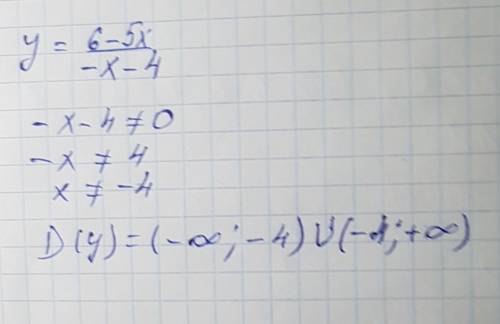 y = (6-5x)/(-x-4)
-x-4≠0
-x ≠ 4
x ≠ -4
D(y)=(-∞;-4)U(-4;+∞)